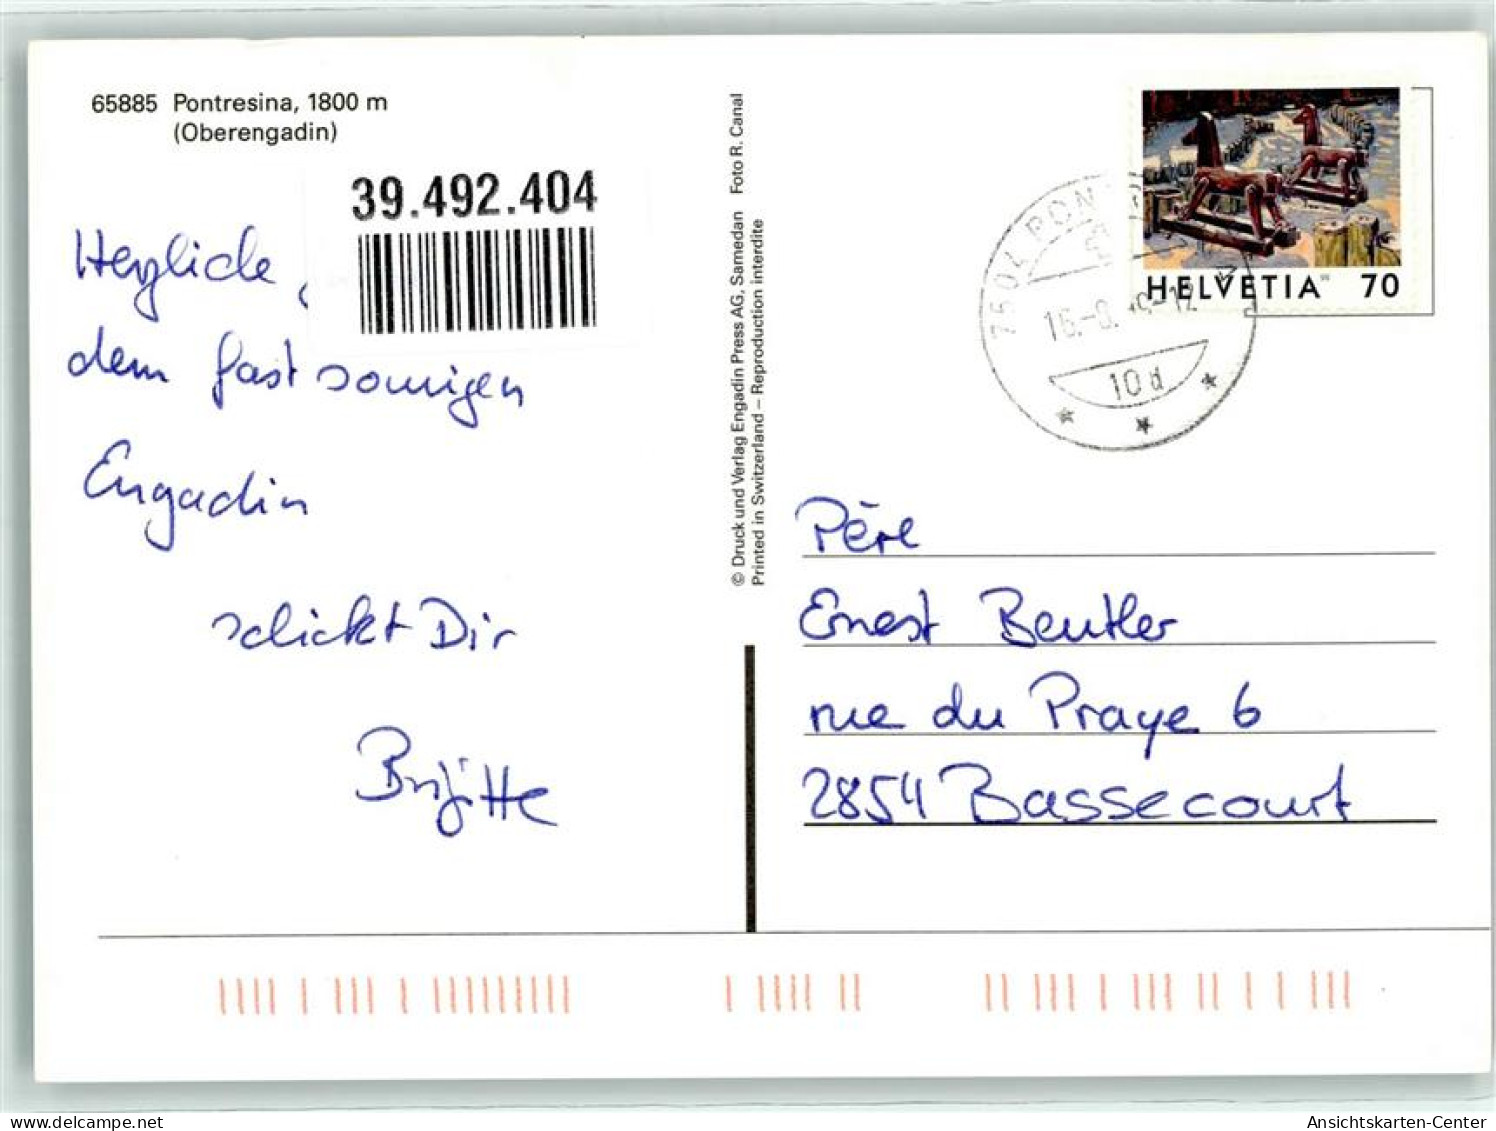 65885 Pontresina, 1800 m
(Oberengadin)
39.492.404
Herzliche
dem fast sonnigen
Engadin
schickt Dir
Brigitte
© Druck und Verlag Engadin Press AG, Samedan Foto R. Canal
Printed in Switzerland – Reproduction interdite
7504 PONT
10 d
HELVETIA 70
Père
Ernest Beutler
rue du Praye 6
2854 Bassecourt
Ansichtskarten-Center